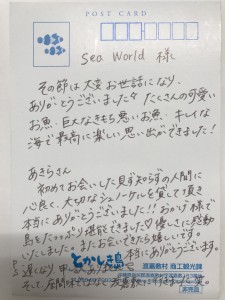 POST CARD
Sea World 様
その節は大変お世話になり、
ありがとうございました。たくさんの可愛い
お魚、巨大なきもち悪いお魚、キレイな
海で最高に楽しい思い出ができました!
あきらさん
初めてお会いした見ず知らずの人間に
心良く、大切なシュノーケルを貸して頂き
本当にありがとうございました!! おかげ様で
島をたっぷり堪能できました♡ 優しさに感動
いたしました。またお会いできたら嬉しいです。
本当にありがとうございます。
P.S
遅くなり、申し訳
とかしき島
渡嘉敷村 商工観光課